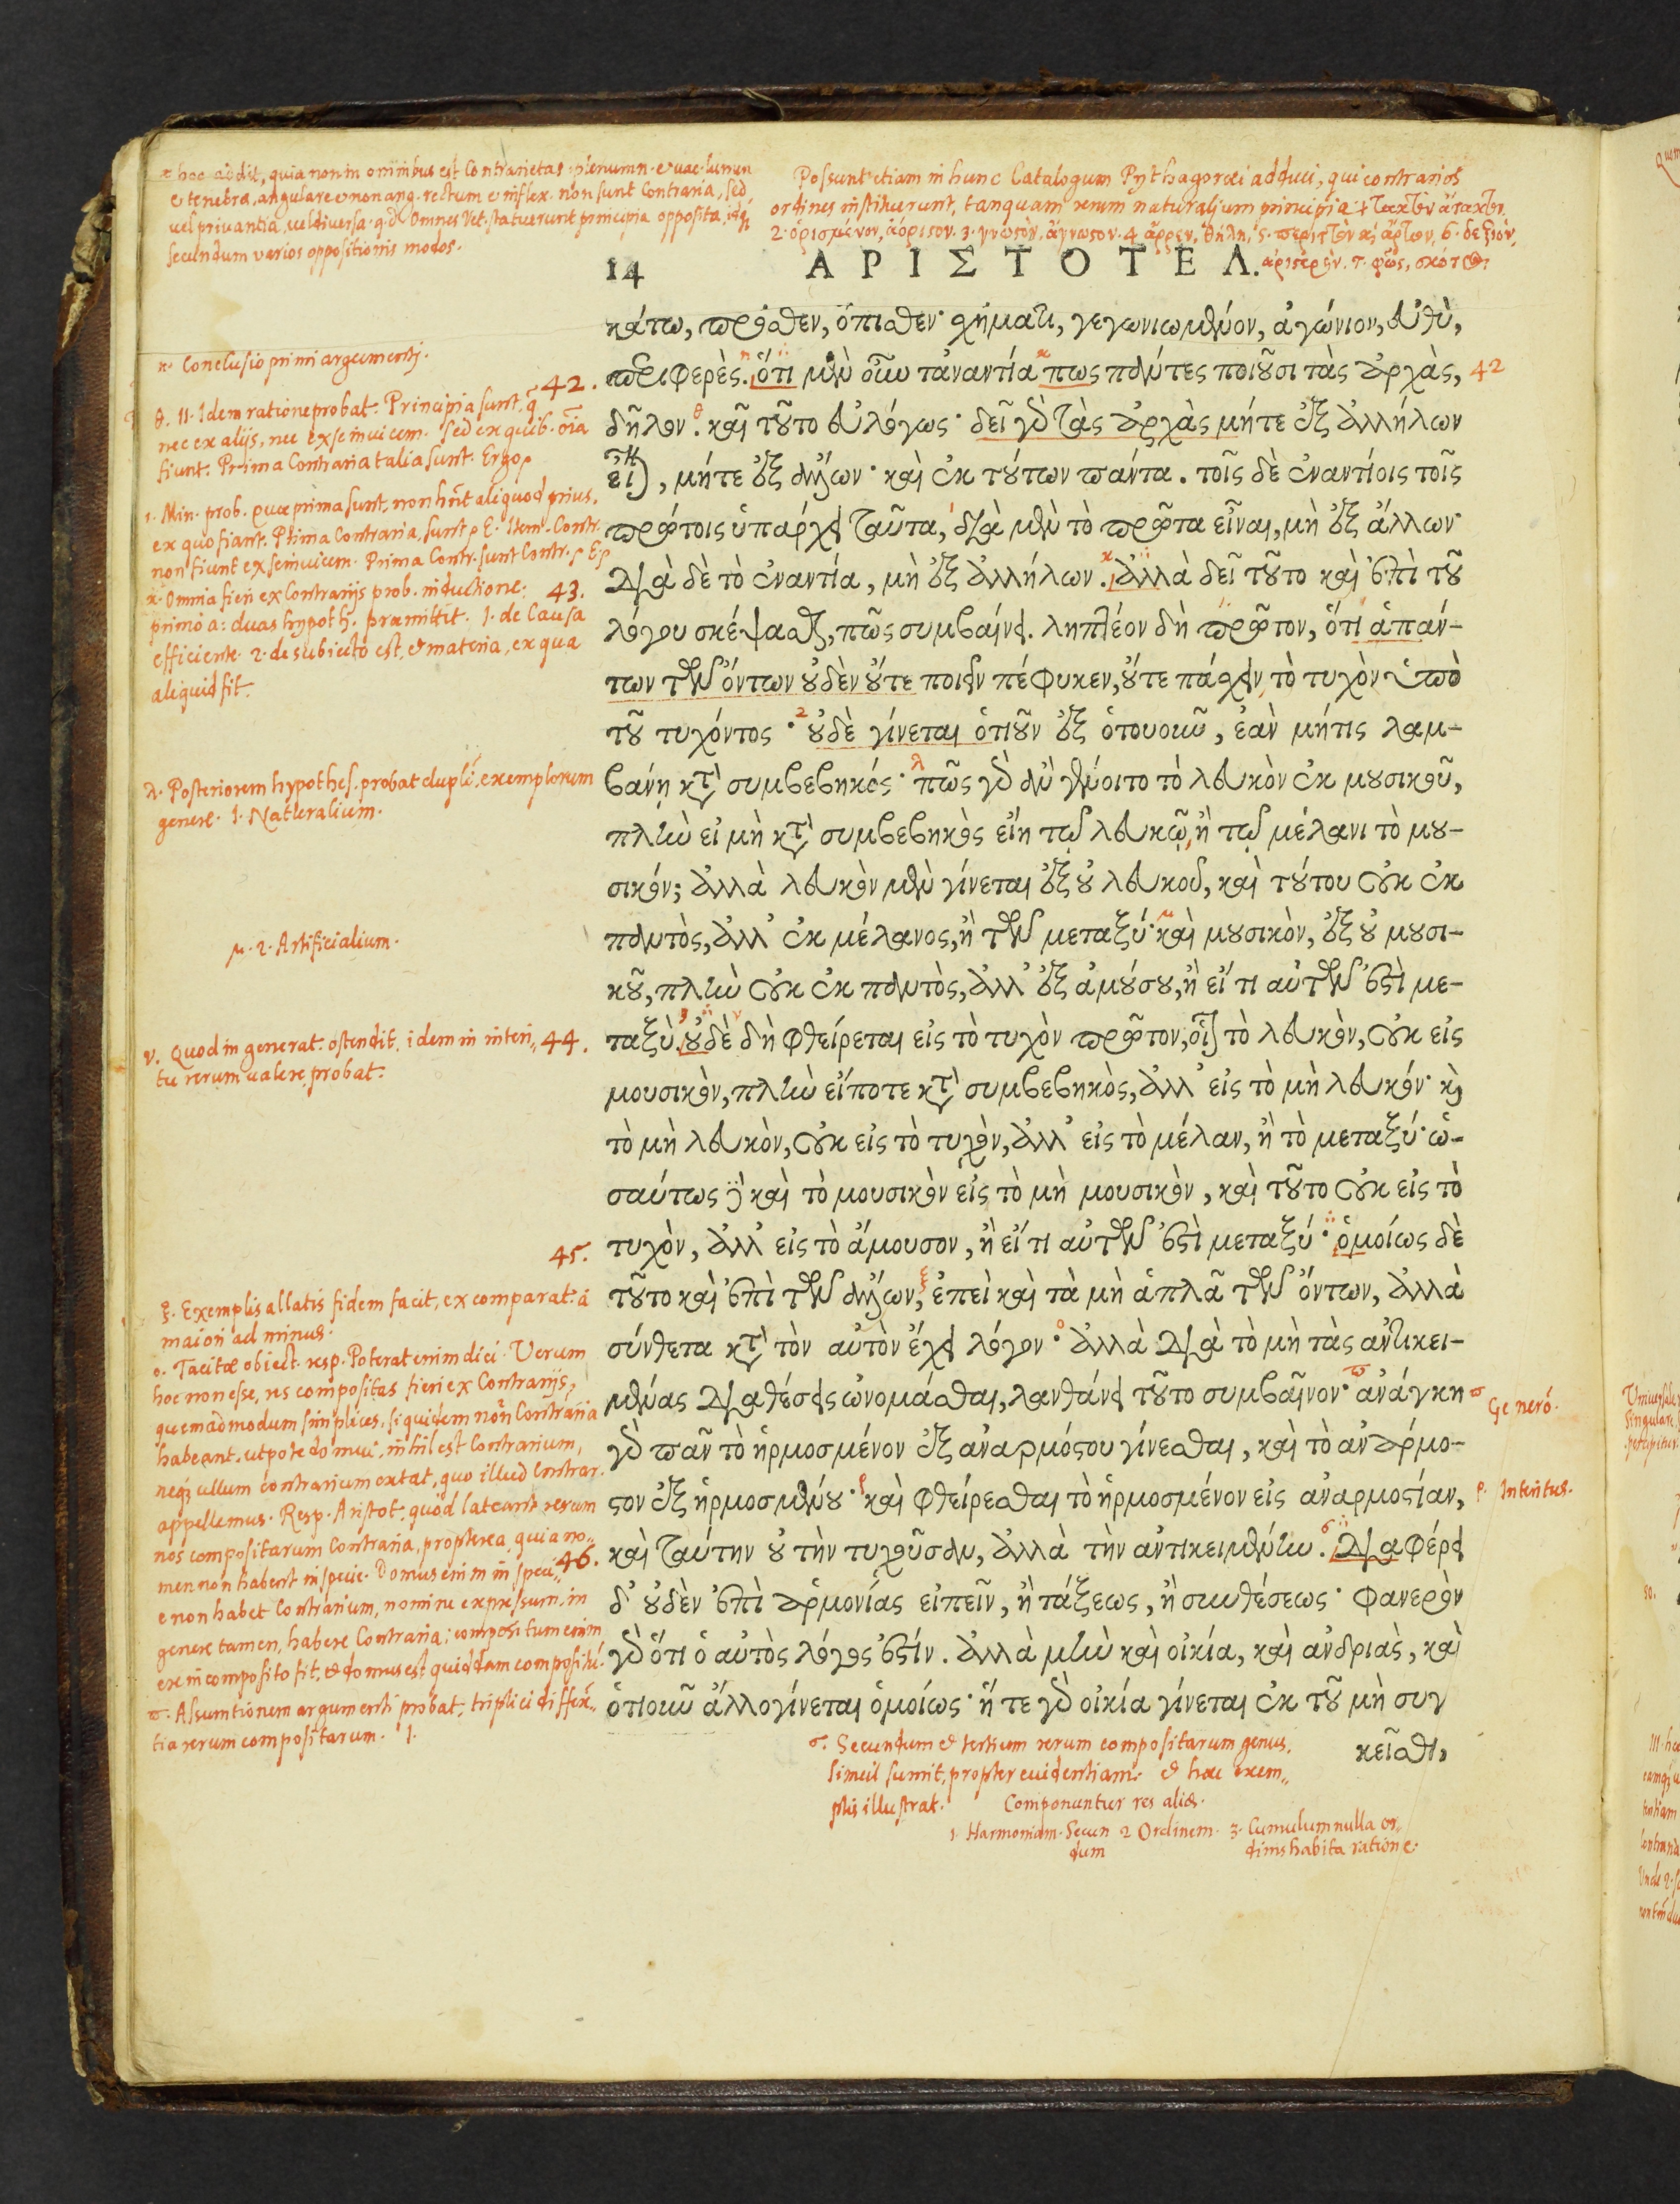 hoc addit, quia non in omnibus est Contrarietas. plenum n. et vac. lumen
et tenebra, angulare et non ang. rectum et inflex. non sunt Contraria, sed
vel privantia, vel diversa. q.d. Omnes Vet. statuerunt principia opposita, idq;
secundum varios oppositionis modos.
Possunt etiam in hunc Catalogum Pythagoraei adduci, qui contrarios
ordines instituerunt, tanquam rerum naturalium principia 1 τακτὸν ἄτακτον.
2. ὁρισμένον, ἀόριστον. 3. γνωστὸν, ἄγνωστον. 4 ἄρρεν, θῆλη, 5. περιττὸν καὶ ἄρτιον, 6. δεξιόν,
ἀριστερόν. 7. φῶς, σκότος.
14 ΑΡΙΣΤΟΤΕΛ.
κάτω, πρόσθεν, ὄπισθεν· σχήματι, γεγωνιωμένον, ἀγώνιον, εὐθὺ,
περιφερές. ὅτι μὲν οὖν τἀναντία πως πάντες ποιοῦσι τὰς ἀρχὰς,
δῆλον. καὶ τοῦτο εὐλόγως· δεῖ γὰρ τὰς ἀρχὰς μήτε ἐξ ἀλλήλων
εἶναι, μήτε ἐξ ἄλλων· καὶ ἐκ τούτων πάντα. τοῖς δὲ ἐναντίοις τοῖς
πρώτοις ὑπάρχει ταῦτα, διὰ μὲν τὸ πρῶτα εἶναι, μὴ ἐξ ἄλλων·
διὰ δὲ τὸ ἐναντία, μὴ ἐξ ἀλλήλων. ἀλλὰ δεῖ τοῦτο καὶ ἐπὶ τοῦ
λόγου σκέψασθαι, πῶς συμβαίνει. ληπτέον δὴ πρῶτον, ὅτι ἁπάν-
των τῶν ὄντων οὐδὲν οὔτε ποιεῖν πέφυκεν, οὔτε πάσχειν τὸ τυχὸν ὑπὸ
τοῦ τυχόντος· οὐδὲ γίνεται ὁτιοῦν ἐξ ὁτουοῦν, ἐὰν μήτις λαμ-
βάνῃ κατὰ συμβεβηκός· πῶς γὰρ ἂν γένοιτο τὸ λευκὸν ἐκ μουσικοῦ,
πλὴν εἰ μὴ κατὰ συμβεβηκὸς εἴη τῷ λευκῷ, ἢ τῷ μέλανι τὸ μου-
σικόν; ἀλλὰ λευκὸν μὲν γίνεται ἐξ οὐ λευκοῦ, καὶ τούτου οὐκ ἐκ
παντὸς, ἀλλ' ἐκ μέλανος, ἢ τῶν μεταξύ· καὶ μουσικὸν, ἐξ οὐ μουσι-
κοῦ, πλὴν οὐκ ἐκ παντὸς, ἀλλ' ἐξ ἀμούσου, ἢ εἴ τι αὐτῶν ἐστὶ με-
ταξὺ. οὐδὲ δὴ φθείρεται εἰς τὸ τυχὸν πρῶτον, οἷον τὸ λευκὸν, οὐκ εἰς
μουσικὸν, πλὴν εἴποτε κατὰ συμβεβηκὸς, ἀλλ' εἰς τὸ μὴ λευκόν· καὶ
τὸ μὴ λευκὸν, οὐκ εἰς τὸ τυχὸν, ἀλλ' εἰς τὸ μέλαν, ἢ τὸ μεταξύ· ὡ-
σαύτως δὲ καὶ τὸ μουσικὸν εἰς τὸ μὴ μουσικὸν, καὶ τοῦτο οὐκ εἰς τὸ
τυχὸν, ἀλλ' εἰς τὸ ἄμουσον, ἢ εἴ τι αὐτῶν ἐστὶ μεταξύ· ὁμοίως δὲ
τοῦτο καὶ ἐπὶ τῶν ἄλλων, ἐπεὶ καὶ τὰ μὴ ἁπλᾶ τῶν ὄντων, ἀλλὰ
σύνθετα κατὰ τὸν αὐτὸν ἔχει λόγον· ἀλλὰ διὰ τὸ μὴ τὰς ἀντικει-
μένας διαθέσεις ὠνομάσθαι, λανθάνει τοῦτο συμβαῖνον· ἀνάγκη
γὰρ πᾶν τὸ ἡρμοσμένον ἐξ ἀναρμόστου γίνεσθαι, καὶ τὸ ἀνάρμο-
στον ἐξ ἡρμοσμένου· καὶ φθείρεσθαι τὸ ἡρμοσμένον εἰς ἀναρμοστίαν,
καὶ ταύτην οὐ τὴν τυχοῦσαν, ἀλλὰ τὴν ἀντικειμένην. διαφέρει
δ' οὐδὲν ἐπὶ ἁρμονίας εἰπεῖν, ἢ τάξεως, ἢ συνθέσεως· φανερὸν
γὰρ ὅτι ὁ αὐτὸς λόγος ἐστίν. ἀλλὰ μὴν καὶ οἰκία, καὶ ἀνδριὰς, καὶ
ὁτιοῦν ἄλλο γίνεται ὁμοίως· ἥ τε γὰρ οἰκία γίνεται ἐκ τοῦ μὴ συγ
κεῖσθαι,
η. Conclusio primi argumenti.
42.
θ. 11. Idem ratione probat. Principia sunt, q̃
nec ex alijs, nec ex se invicem. sed ex quib. oĩa
fiunt. Prima Contraria talia sunt. Ergo
ι. Min. prob. quae prima sunt, non hñt aliquod prius,
ex quo fiant. Prima Contraria, sunt p E. Item. Contr.
non fiunt ex se invicem. Prima Contr. sunt Contr. p E.
κ. Omnia fieri ex Contrarijs prob. inductione: 43.
primo a: duas hypoth. praemittit. 1. de Causa
efficiente. 2. de subiecto est, et materia, ex qua
aliquid fit.
λ. Posteriorem hypothes. probat dupli, exemplorum
genere. 1. Naturalium.
μ. 2. Artificialium.
ν. Quod in generat. ostendit, idem in interi„ 44.
tu rerum valere probat.
45.
ξ. Exemplis allatis fidem facit, ex comparat. á
maiori ad minus.
ο. Tacitae obiect. resp. Poterat enim dici. Verum
hoc non esse, res compositas fieri ex Contrarijs,
quemadmodum simplices, siquidem non Contraria
habeant. utpote domui, nihil est Contrarium,
neq; ullum contrarium extat, quo illud Contrar.
appellemus. Resp. Aristot. quod lateant rerum
nos compositarum Contraria, propterea, quia no„
men non habent in specie. Domus enim in speci„ 46.
e non habet Contrarium, nomine expressum, in
genere tamen, habere Contraria; compositum enim
ex incomposito fit, et domus est quiddam compositũ.
π. Assumtionem argumenti probat, triplici differẽ„
tia rerum compositarum. 1.
42
π Generõ.
ρ. Interitus.
σ. Secundum et tertium rerum compositarum genus,
simul sumit, propter evidentiam. et haec exem„
plis illustrat. Componuntur res aliae.
1. Harmoniam. Secun 2 Ordinem. 3. Cumulum nulla or„
dum dinis habita ratione.